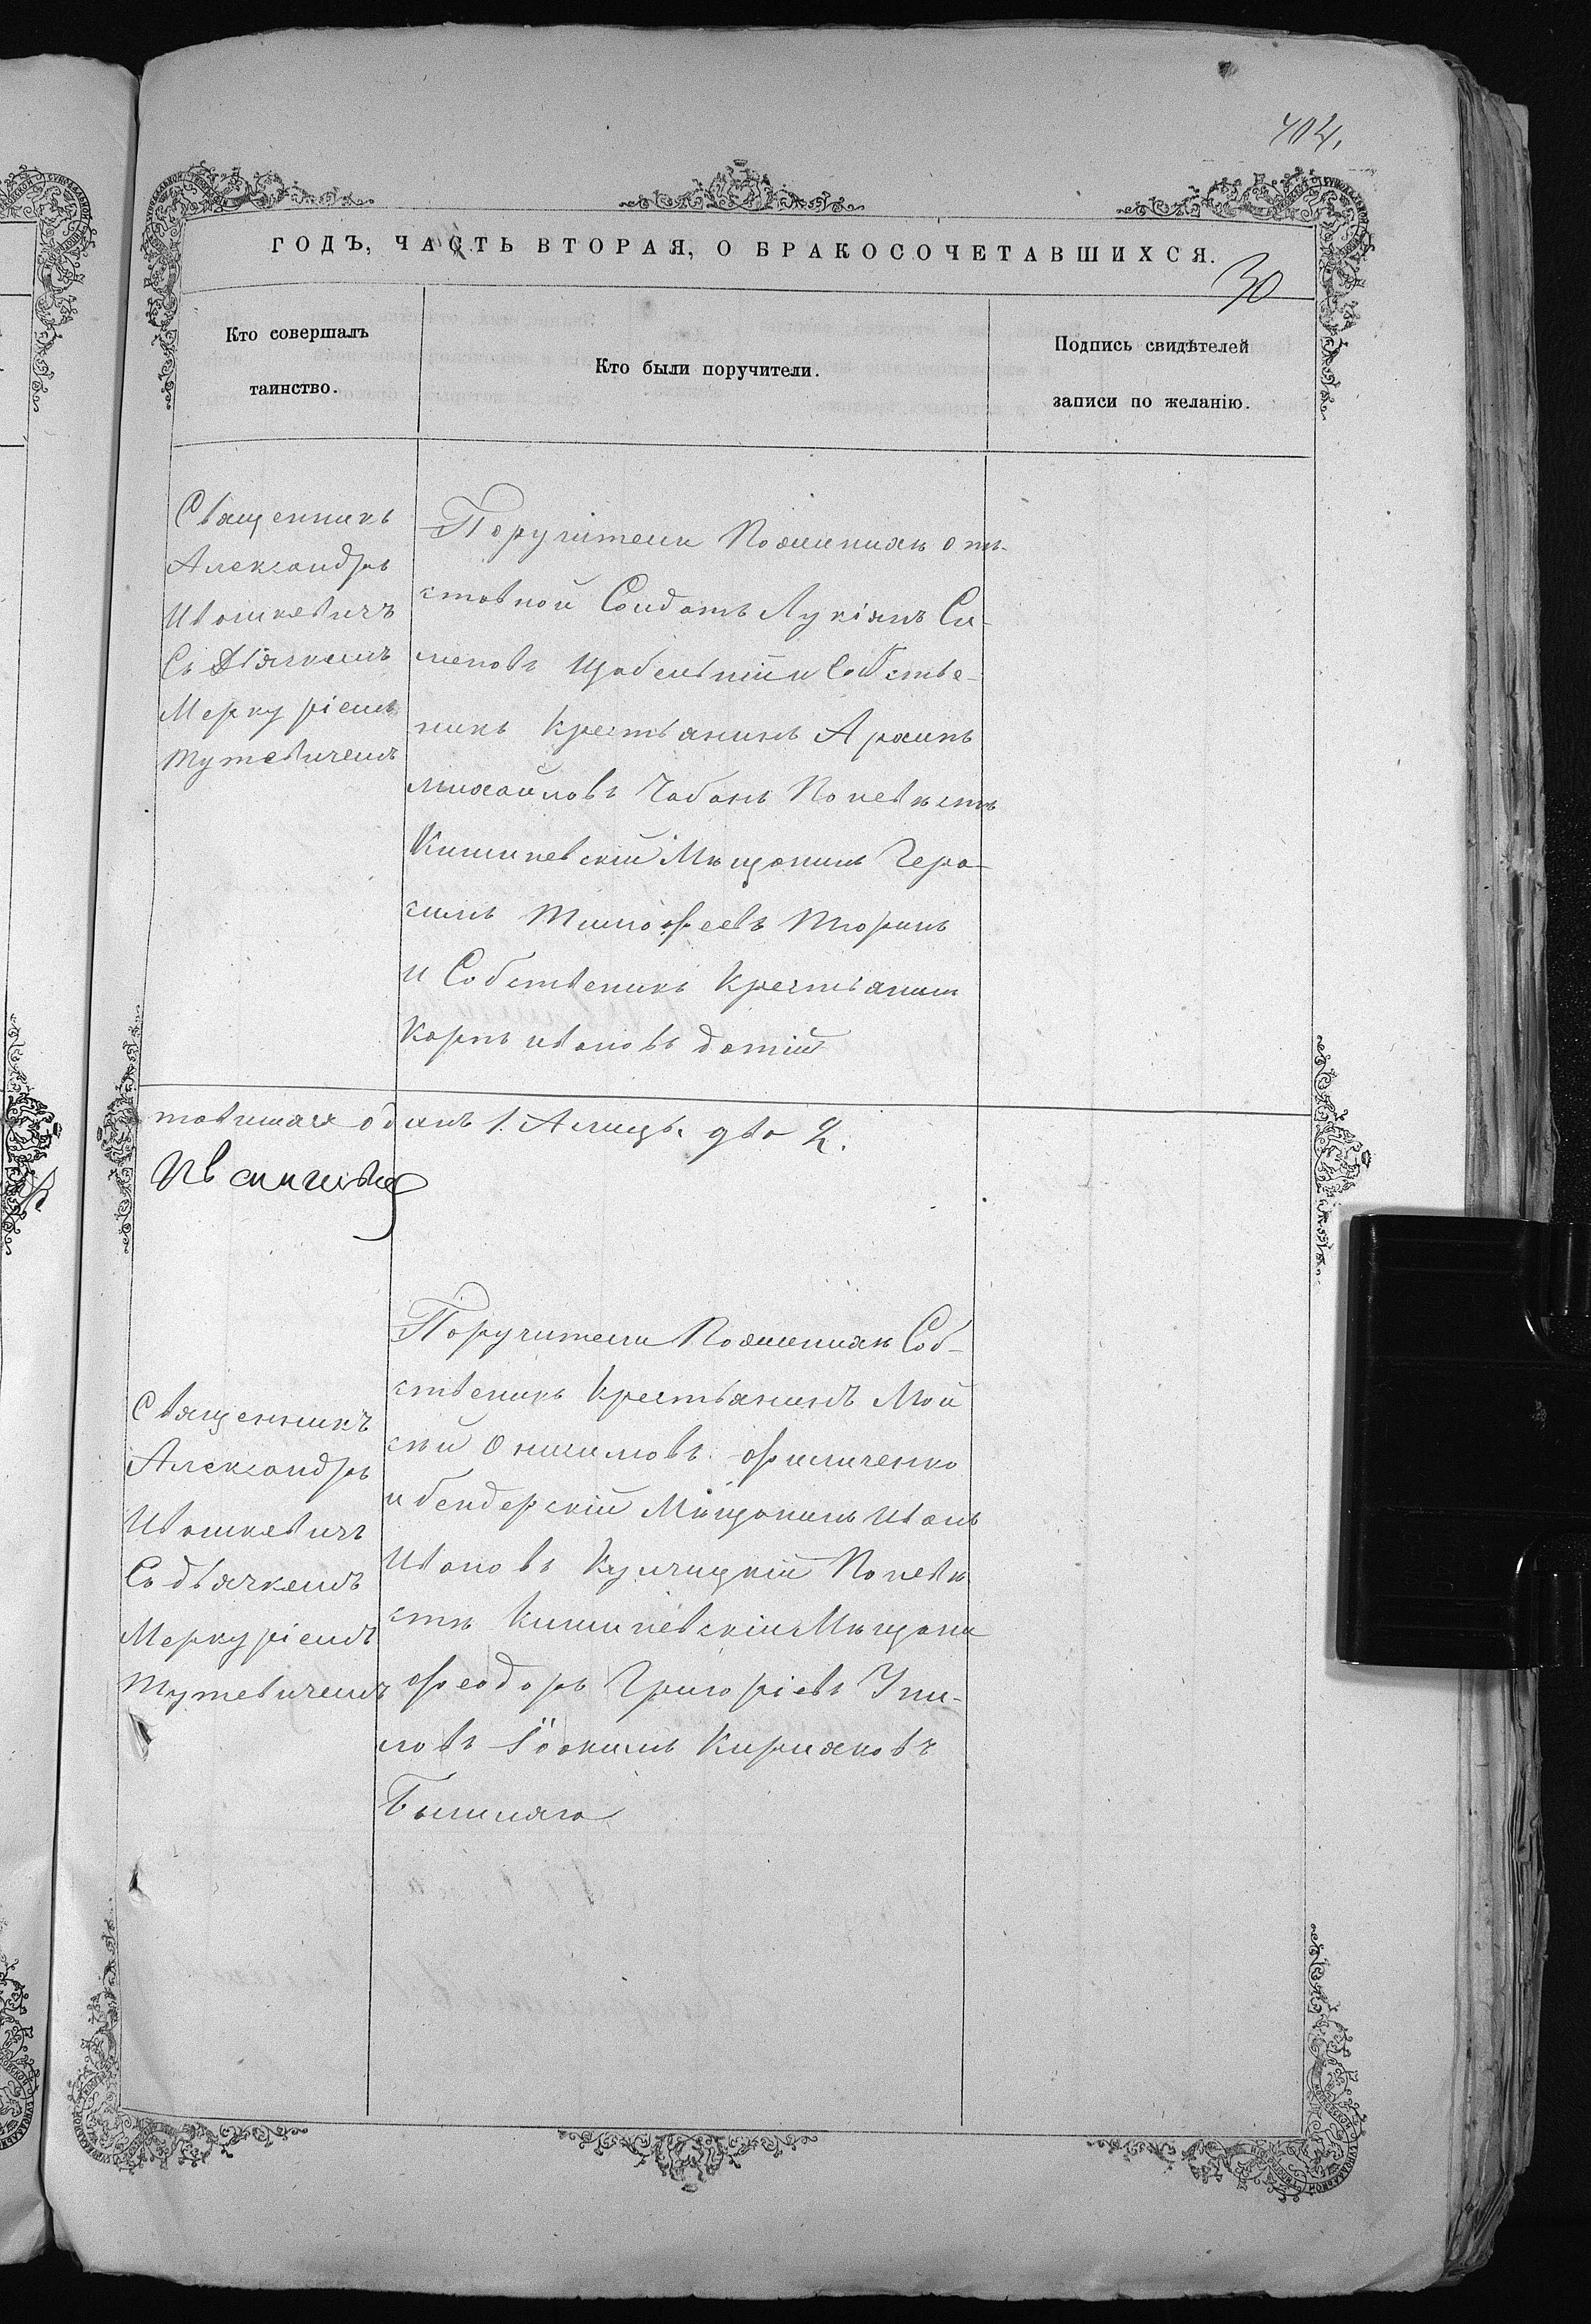 404.
ГОДЪ, ЧАСТЬ ВТОРАЯ, О БРАКОСОЧЕТАВШИХСЯ.
30
Кто совершалъ
таинство.
Кто были поручители.
Подпись свидѣтелей
записи по желанію.
Священникъ
Александръ
Ивашкевичъ
Съ Дьячкомъ
Меркуріемъ
Тутевичемъ
Поручители По женихѣ от-
ставной Солдатъ Лукіянъ Си-
меновъ и Собстве-
никъ крестьянинъ
михайловъ Чабанъ По невѣстѣ
Кишиневскій Мѣщанинъ Гера-
симъ Тимофеевъ Тюринъ
и Собственикъ Крестьянин
Карпъ ивановъ
одинъ 1. два 2.
Священникъ
Александръ
Ивашкевичъ
Съ дьячкомъ
Меркуріемъ
Тутевичемъ
Поручители По женихѣ Соб-
ственикъ Крестьянинъ Мой
сѣй Онисимовъ Филиченко
и бендерскій Мѣщанинъ Иванъ
Ивановъ По невѣ
стѣ Кишиневскій Мѣщани
Феодоръ Григоріевъ
ловъ Іоакимъ Киріяковъ